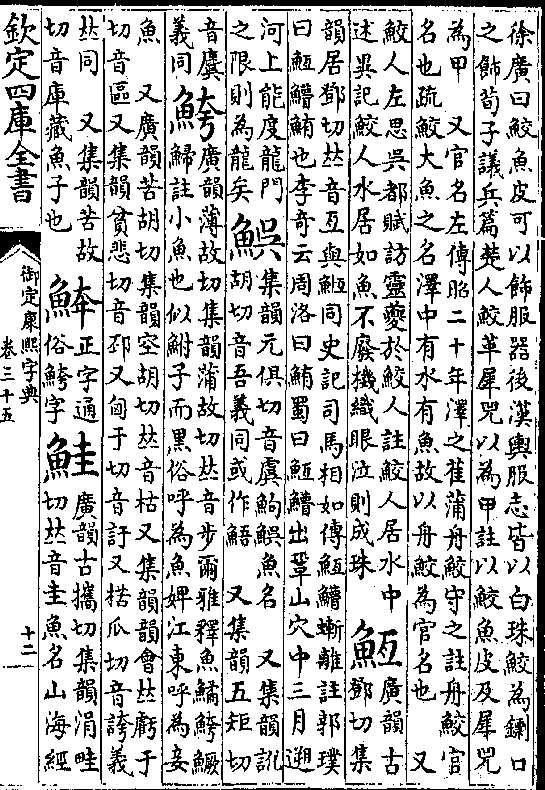 徐廣曰鮫魚皮可以飾服器後漢輿服志皆以白珠鮫為鐗口
之飾荀子議兵篇楚人鮫革犀兕以為甲註以鮫魚皮及犀兕
為甲 又官名左傳昭二十年澤之萑蒲舟鮫守之註舟鮫官
名也疏鮫大魚之名澤中有水有魚故以舟鮫為官名也 又
鮫人左思吳都賦訪靈夔於鮫人註鮫人居水中
述異記鮫人水居如魚不廢機織眼泣則成珠
䱍 廣韻古
鄧切集
韻居鄧切𠀤音亙與䱍同史記司馬相如傳䱍䲛螹離註郭璞
曰䱍䲛鮪也李奇云周洛曰鮪蜀曰䱍䲛出鞏山穴中三月遡
河上能度龍門
之限則為龍矣
集韻元俱切音虞鮈魚名 又集韻訛
胡切音吾義同或作鯃 又集韻五矩切
音麌
義同
鮬 廣韻薄故切集韻蒲故切𠀤音步爾雅釋魚鱊鮬鱖
鯞註小魚也似鮒子而黑俗呼為魚婢江東呼為妾
魚 又廣韻苦胡切集韻空胡切𠀤音枯又集韻韻會𠀤虧于
切音區又集韻貧悲切音邳又匈于切音訏又枯瓜切音誇義
𠀤同 又集韻苦故
切音庫藏魚子也
正字通
俗鮬字
鮭 廣韻古攜切集韻涓畦
切𠀤音圭魚名山海經
欽定四庫全書
御定康熙字典
卷三十五
十二